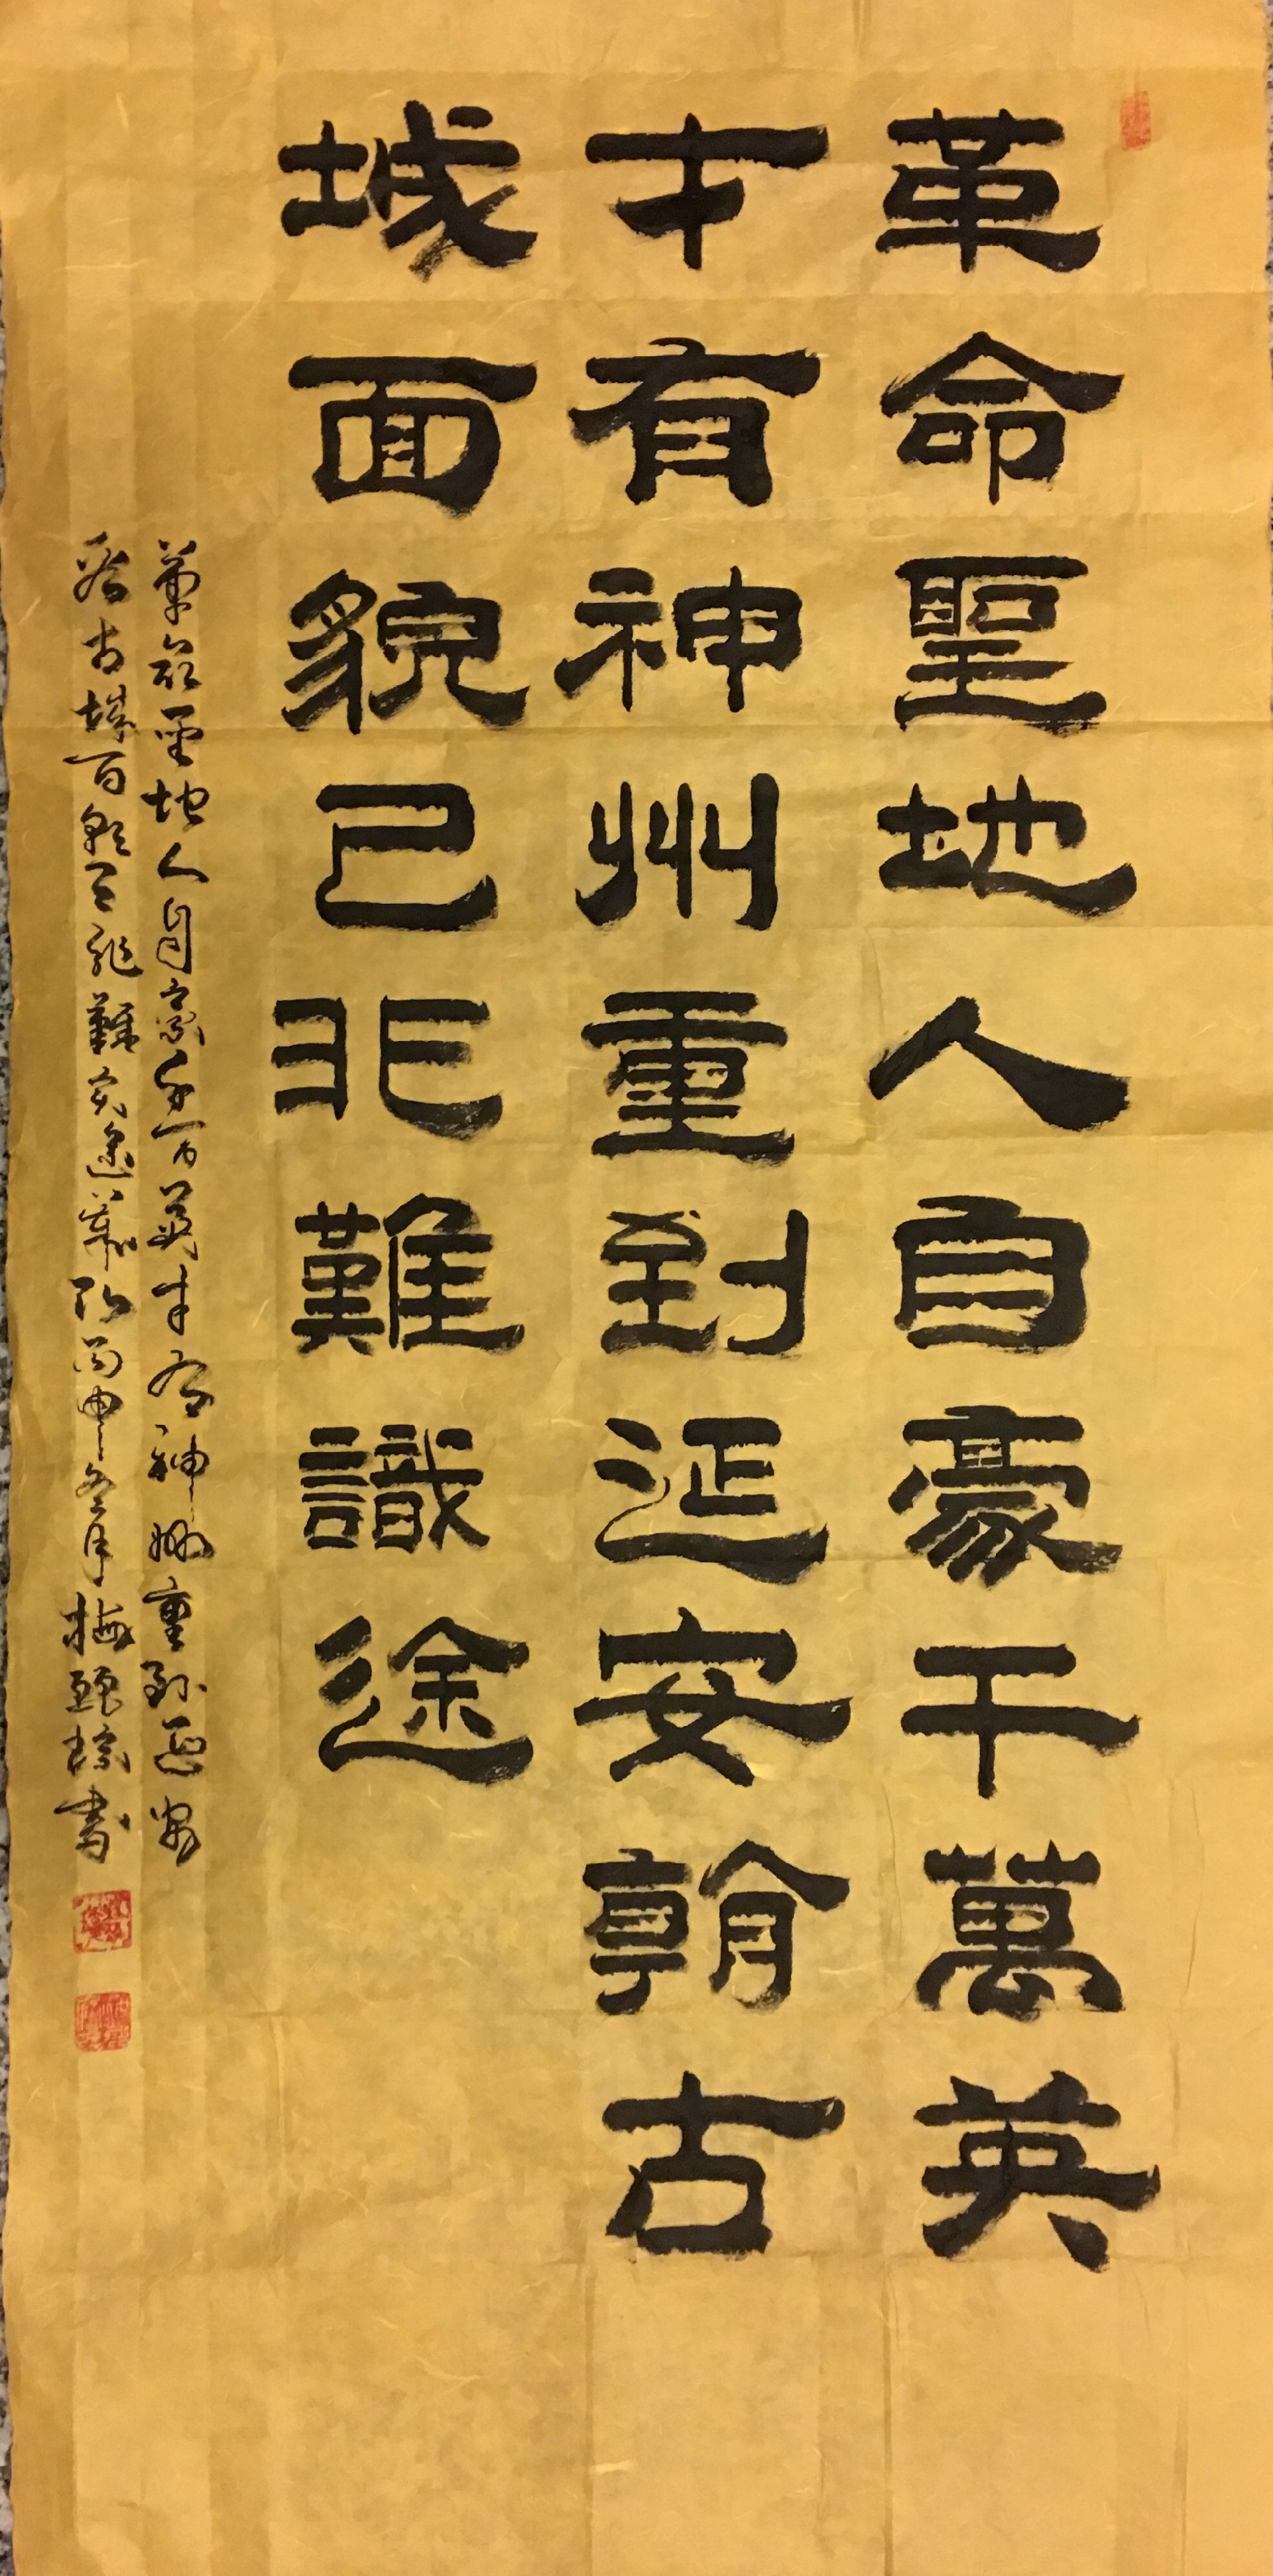 革命聖地人自豪千萬英
才有神州重到延安朝古
城面貌已非難識途
革命聖地人自豪千万英才有神州重到延安
古城面貌已非難識途丙申冬月梅書